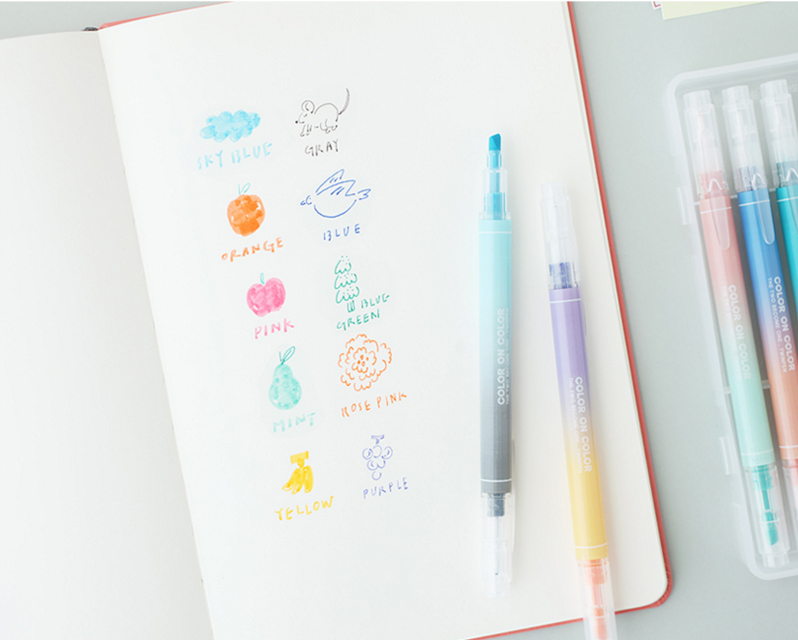 SKY BLUE
GRAY
ORANGE
BLUE
PINK
BLUE
GREEN
MINT
ROSE PINK
YELLOW
PURPLE
COLOR ON COLOR
COLOR ON COLOR
COLOR ON COLOR
COLOR ON COLOR